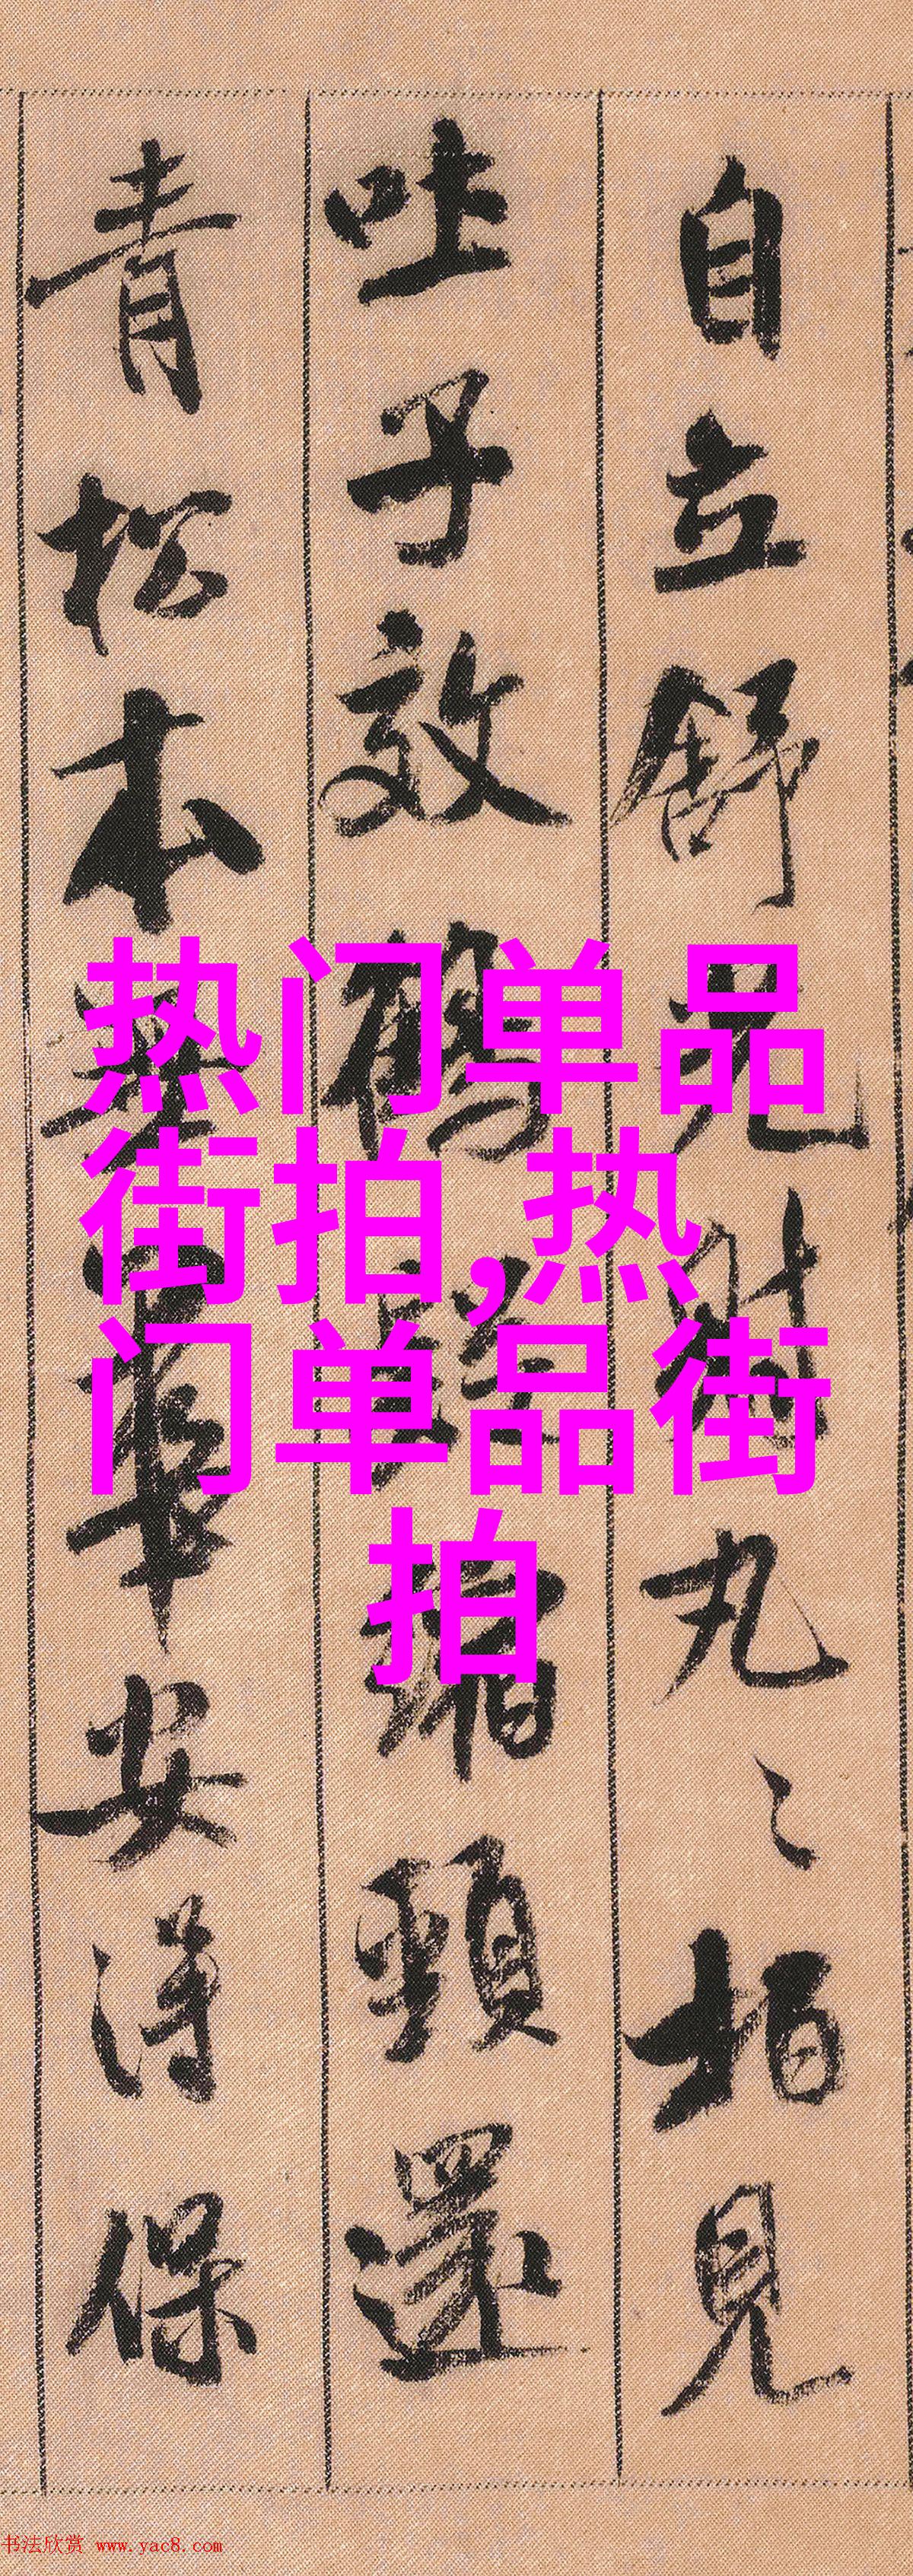 自立舒光射丸〻柏見
吐子效鶴疑縮頸還
青松本無華安得保
热门单品
街拍,热
门单品街
拍
书法欣赏 www.yac8.com